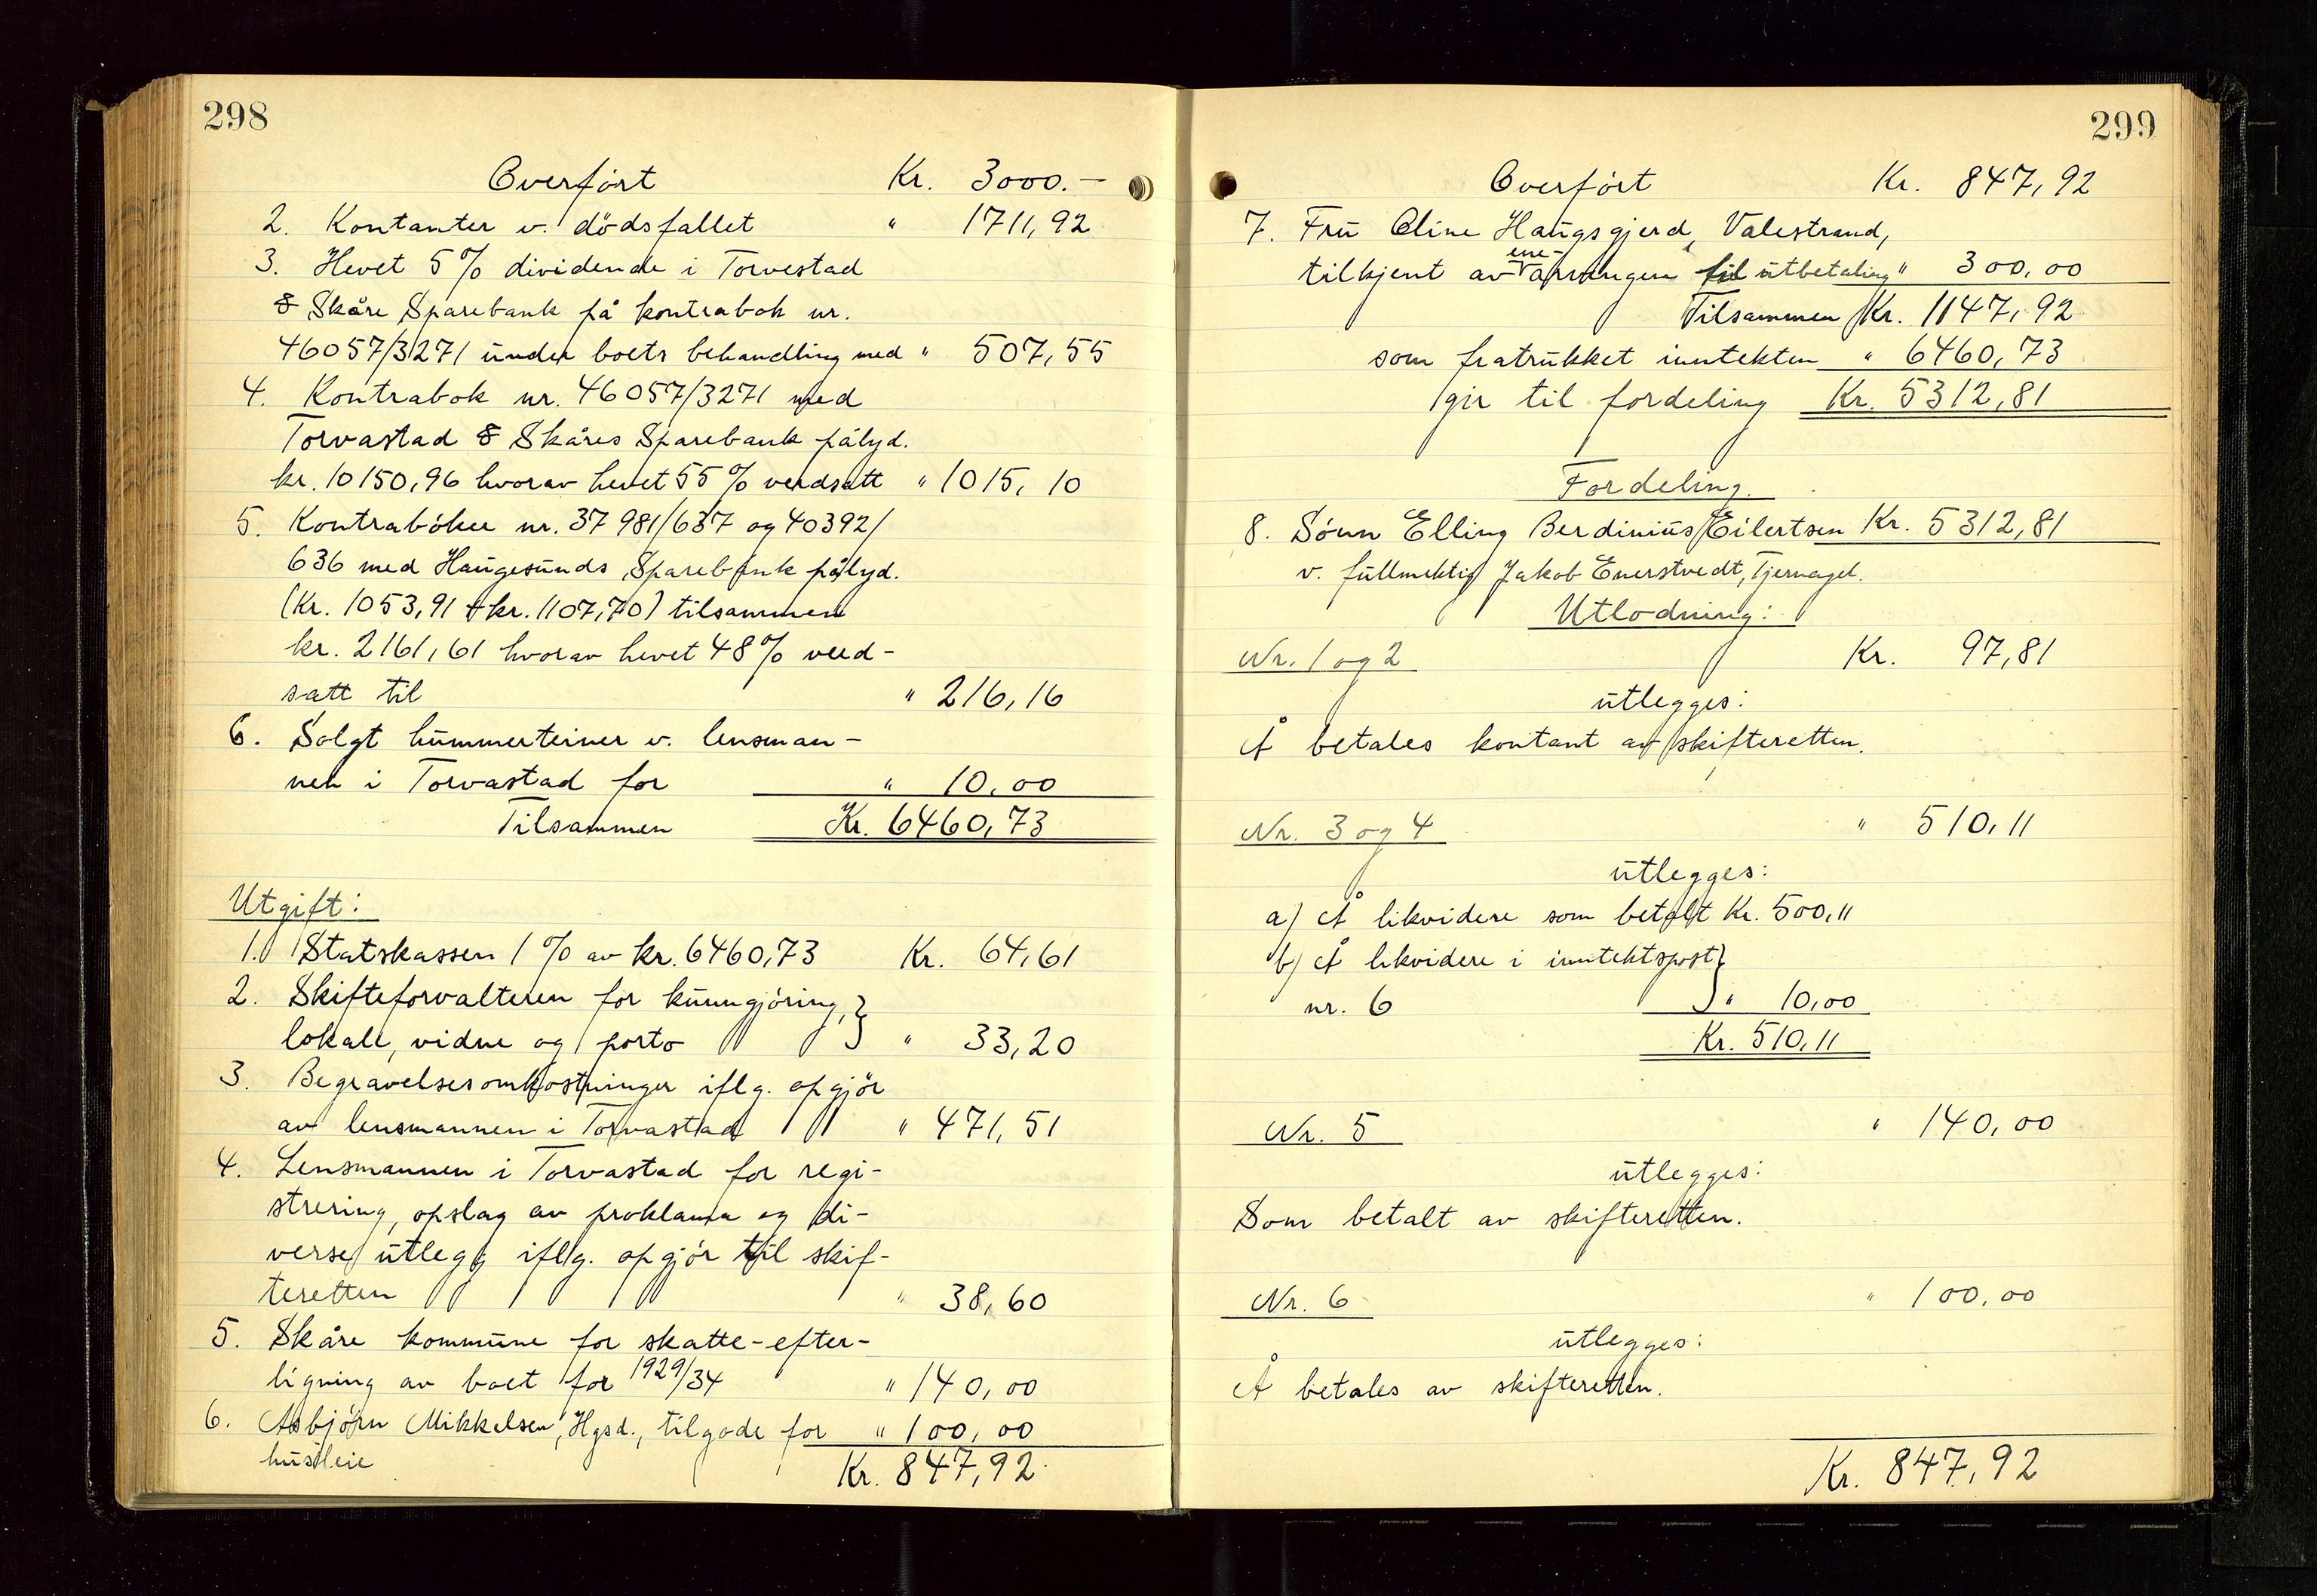 298
Overført Kr. 3000.-
2. Kontanter v. dödsfallet " 1711,92
3. Hevet 5 % dividende i Torvestad
& Skåre Sparebank på kontrabok nr.
46057/3271 under boets behandling med " 507,55
4. Kontrabok nr. 46057/3271 med
Torvastad & Skåres Sparebank pålyd.
kr. 10150,96 hvorav hevet 55 % verdsatt " 1015,10
5. Kontrabøker nr. 37981/637 og 40392/
636 med Haugesunds Sparebank pålyd.
(Kr. 1053,91 + kr. 1107,70) tilsammen
kr. 2161,61 hvorav hevet 48 % verd-
satt til " 216,16
6. Solgt hummerteiner v. lensman-
nen i Torvastad for " 10,00
Tilsammen Kr. 6460,73
Utgift:
1. Statskassen 1 % av kr. 6460,73 Kr. 64,61
2. Skifteforvalteren for kunngjöring,
lokale, vidne og porto " 33,20
3. Begravelsesomkostninger iflg. opgjör
av lensmannen i Torvastad " 471,51
4. Lensmannen i Torvastad for regi-
strering, opslag av proklama og di-
verse utlegg iflg. opgjør til skif-
teretten " 38,60
5. Skåre kommune for skatte-efter-
ligning av boet for 1929/34 " 140,00
6. Asbjørn Mikkelsen, Hgsd., tilgode for " 100,00
husleie Kr. 847,92
299
Overført Kr. 847,92
7. Fru Oline Haugsgjerd, Valestrand,
tilkjent av ene-arvingen til utbetaling " 300,00
Tilsammen Kr. 1147,92
som fratrukket inntekten " 6460,73
gir til fordeling Kr. 5312,81
Fordeling.
8. Sønn Elling Berdinius Eilertsen Kr. 5312,81
v. fullmektig Jakob Enerstvedt, Tjernagel.
Utlodning:
Nr. 1 og 2 Kr. 97,81
utlegges:
Å betales kontant av skifteretten.
Nr. 3 og 4 " 510,11
utlegges:
a) Å likvidere som betalt Kr. 500,11
b) Å likvidere i inntektspost
nr. 6 " 10,00
Kr. 510,11
Nr. 5 " 140,00
utlegges:
Som betalt av skifteretten.
Nr. 6 " 100,00
utlegges:
Å betales av skifteretten.
Kr. 847,92